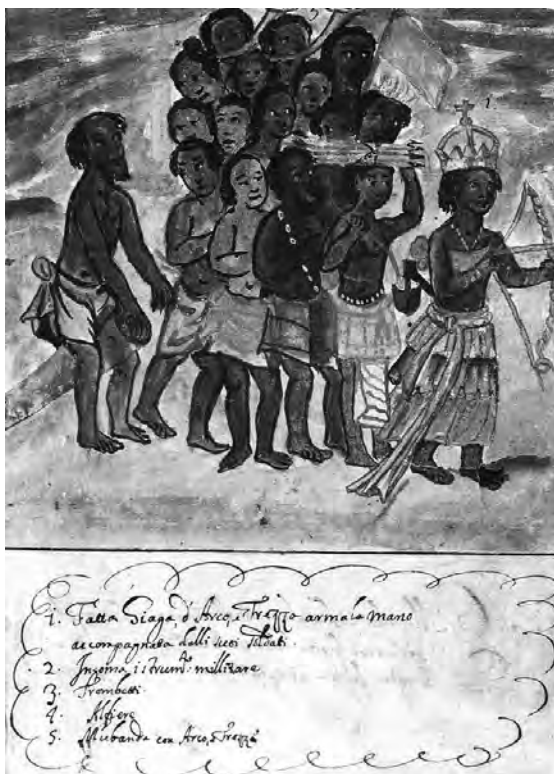 1
1. Fatta Giaga d'Arco, e Frezze armala mano
accompagnata dalli suoi soldati.
2. Ingoma istrum.to millitare
3. Trombetti
4. Alfiere
5. con Arco, e Frezze